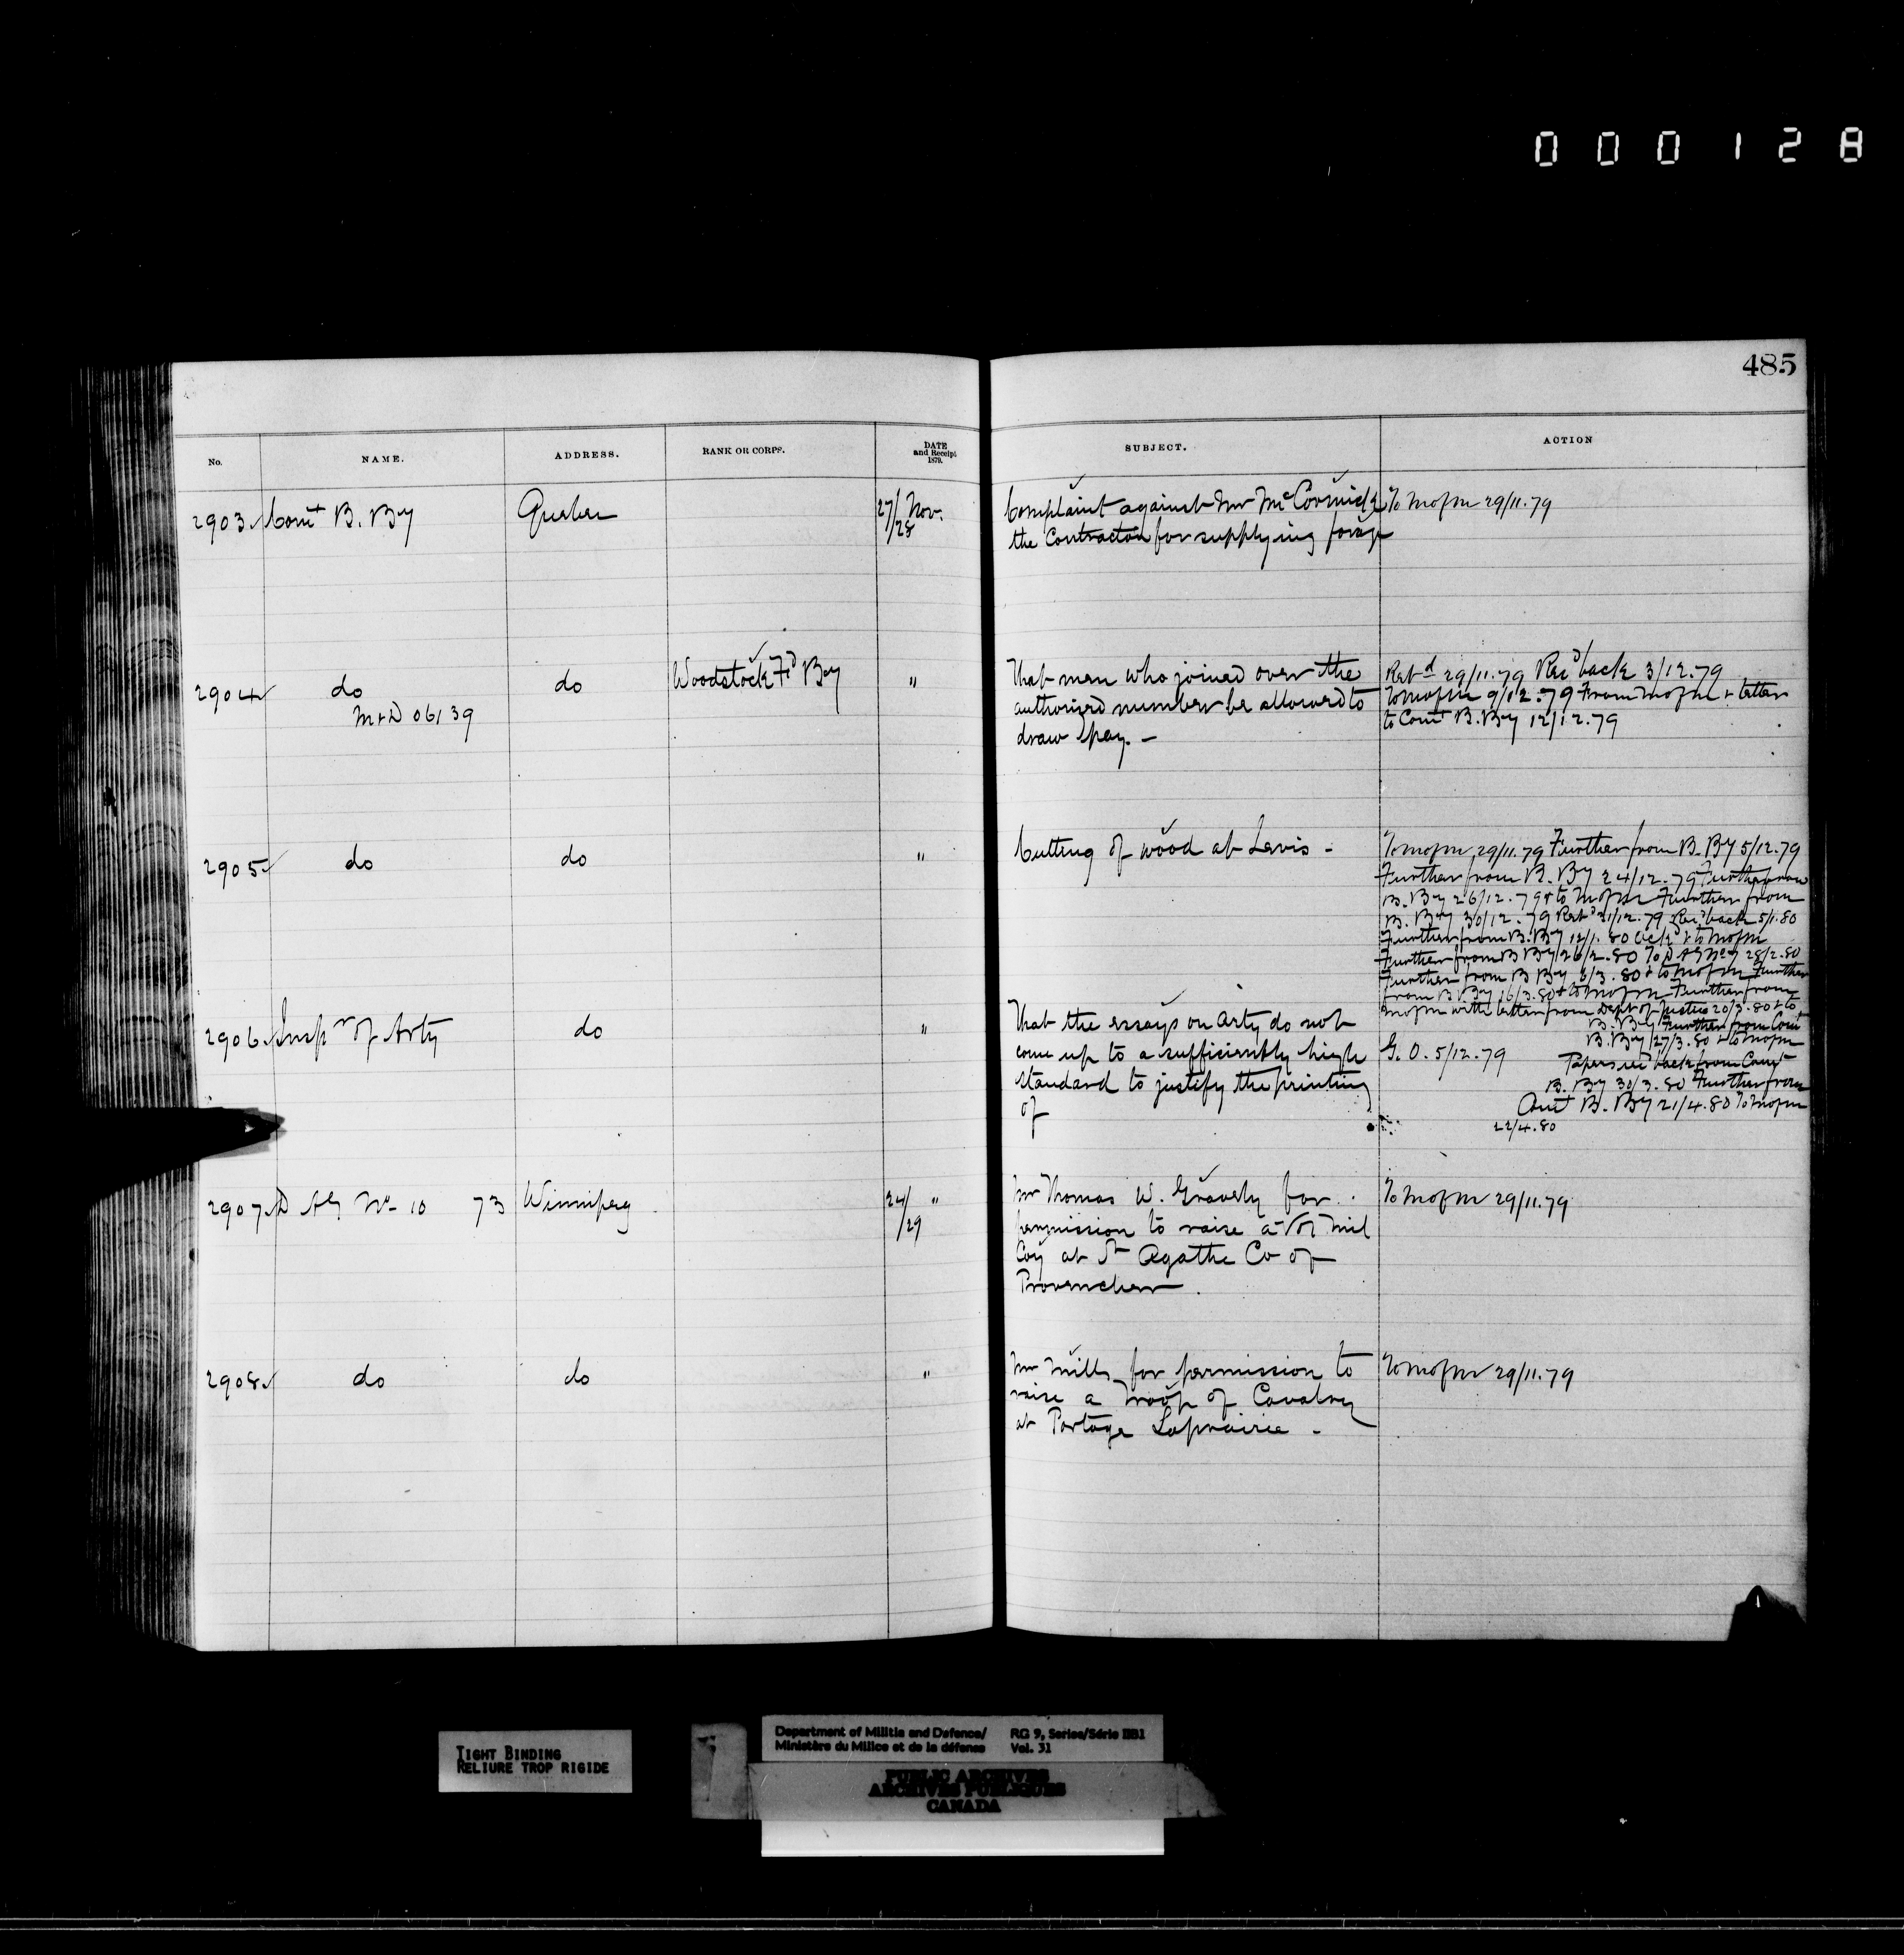 000128
485
No. NAME. ADDRESS. RANK OR CORPS. DATE and Receipt 1879. SUBJECT. ACTION
2903 Comt B. By Quebec 27/28 Nov. Complaint against Mr McCormick To M of M 29/11.79
the Contractor for supplying forage
2904 do do Woodstock Fd By " That men who joined over the Retd 29/11.79 Recd back 3/12.79
M & D 06139 authorized number be allowed to To M of M 9/12.79 From M of M & letter
draw pay. — to Comt B. By 12/12.79
2905 do do " Cutting of wood at Levis - To M of M 29/11.79 Further from B. By 5/12.79
Further from B. By 24/12.79 Further from
B. By 26/12.79 & to M of M Further from
B. By 30/12.79 Retd 31/12.79 Recd back 5/1.80
Further from B. By 12/1.80 & to M of M
Further from B By 26/2.80 To D A G No 7 28/2.80
Further from B By 6/3.80 & to M of M Further
from B. By 16/3.80 & to M of M Further from
M of M with letter from Dept of Justice 20/3.80 & to
B. By Further from Comt
B. By 27/3.80 & to M of M
Papers recd back from Comt
B. By 30/3.80 Further from
Comt B. By 21/4.80 To M of M
22/4.80
2906 Inspr of Arty do " That the essays on Arty do not
come up to a sufficiently high G. O. 5/12.79
standard to justify the printing
of
2907 D A G No 10 73 Winnipeg 24/29 " Mr Thomas W. Gravely for To M of M 29/11.79
permission to raise a Vol Mil
Coy at St Agathe Co of
Provencher.
2908 do do " Mr Mills for permission to To M of M 29/11.79
raise a Troop of Cavalry
at Portage Laprairie -
TIGHT BINDING
RELIURE TROP RIGIDE
Department of Militia and Defence/ RG 9, Series/Série IIB1
Ministère du Milice et de la défense Vol. 31
PUBLIC ARCHIVES
ARCHIVES PUBLIQUES
CANADA